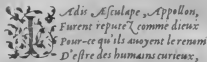 IAdis Æsculape, Appollon,
Furent reputez comme dieux
Pource qu'ils auoyent le renum
D'estre des humains curieux,